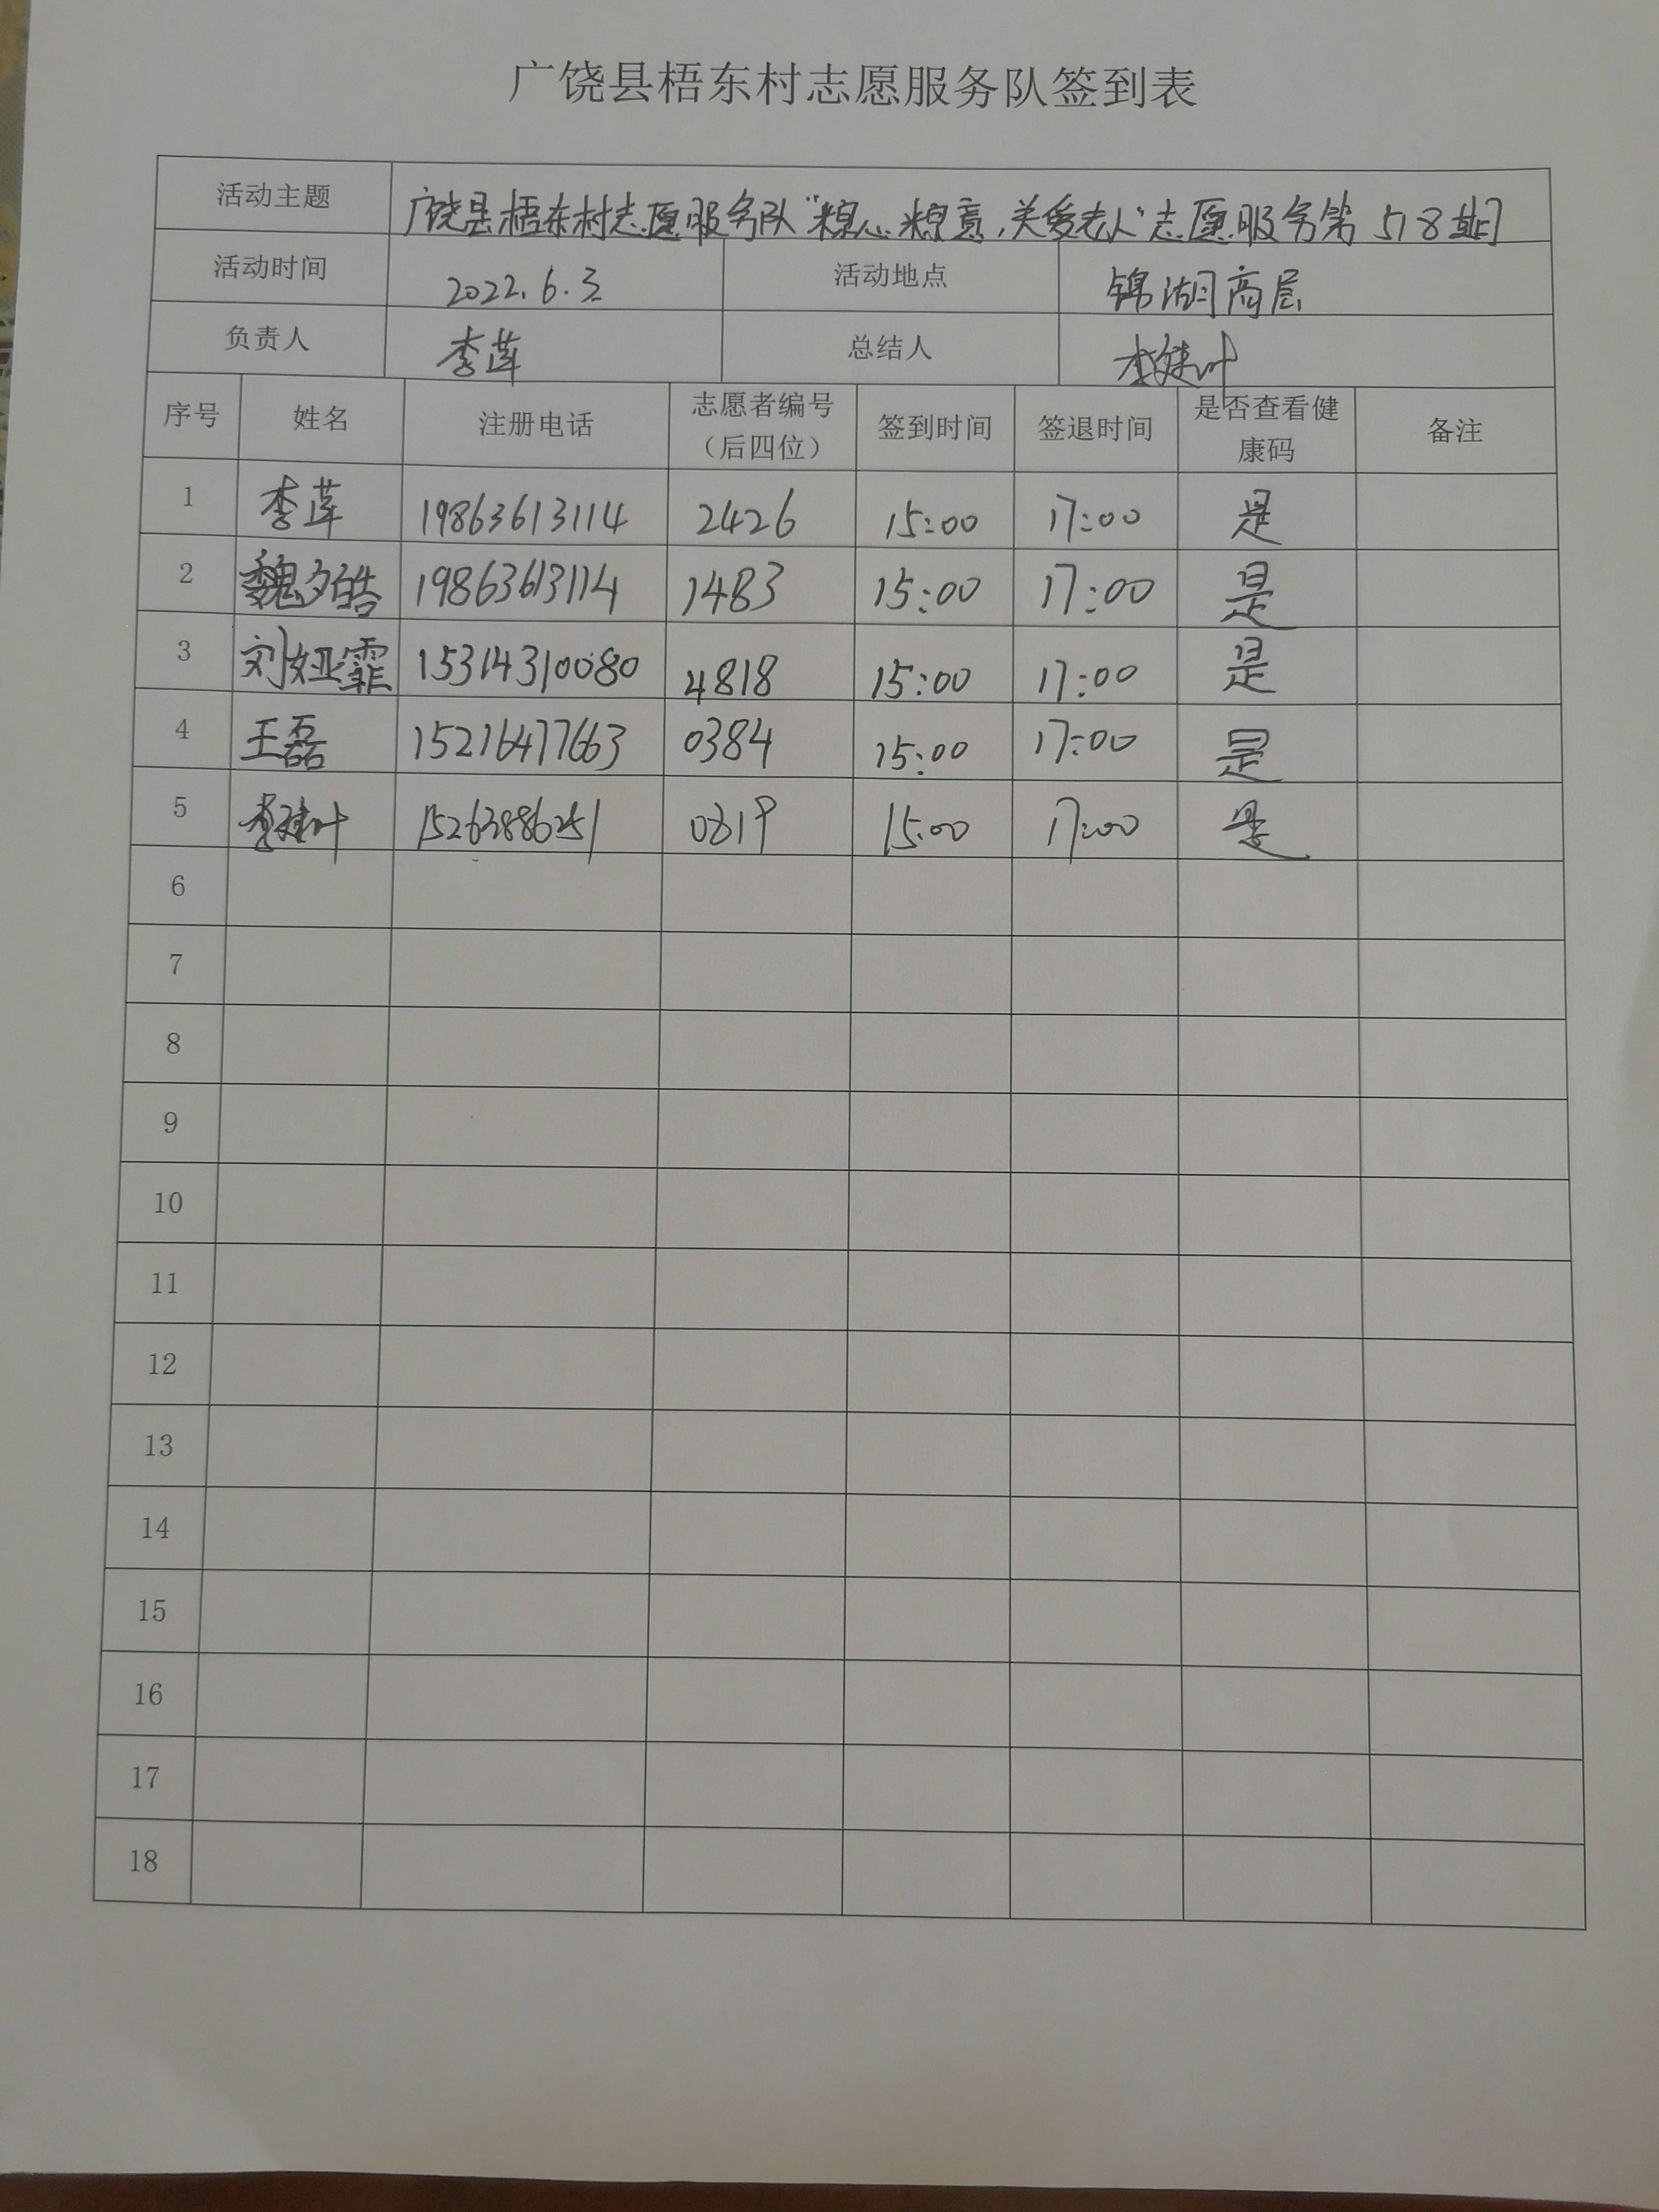 广饶县梧东村志愿服务队签到表
活动主题 广饶县梧东村志愿服务队"粽心粽意,关爱老人"志愿服务第518期
活动时间 2022.6.3 活动地点 锦湖高层
负责人 李莲 总结人
序号 姓名 注册电话 志愿者编号（后四位） 签到时间 签退时间 是否查看健康码 备注
1 李莲 19863613114 2426 15:00 17:00 是
2 魏夕皓 19863613114 1483 15:00 17:00 是
3 刘娅霏 15314310080 4818 15:00 17:00 是
4 王磊 15216477663 0384 15:00 17:00 是
5 15263886251 0819 15:00 17:00 是
6
7
8
9
10
11
12
13
14
15
16
17
18